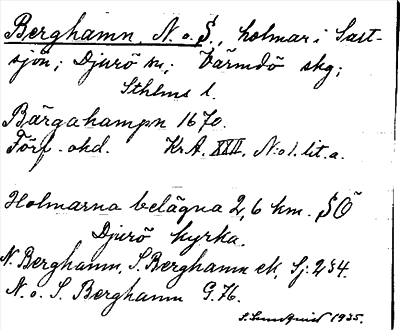 Berghamn, N. o. S., holmar i Salt-
sjön; Djurö sn; Värmdö skg;
Sthlms l.
Bärgahampn 1670.
Förf. okd. Kr.A. XXII. N:o 1. lit. a.
Holmarna belägna 2,6 km. SÖ
Djurö kyrka.
N. Berghamn, S. Berghamn ek, Sj. 234.
N. o. S. Berghamn G. 76.
1935.